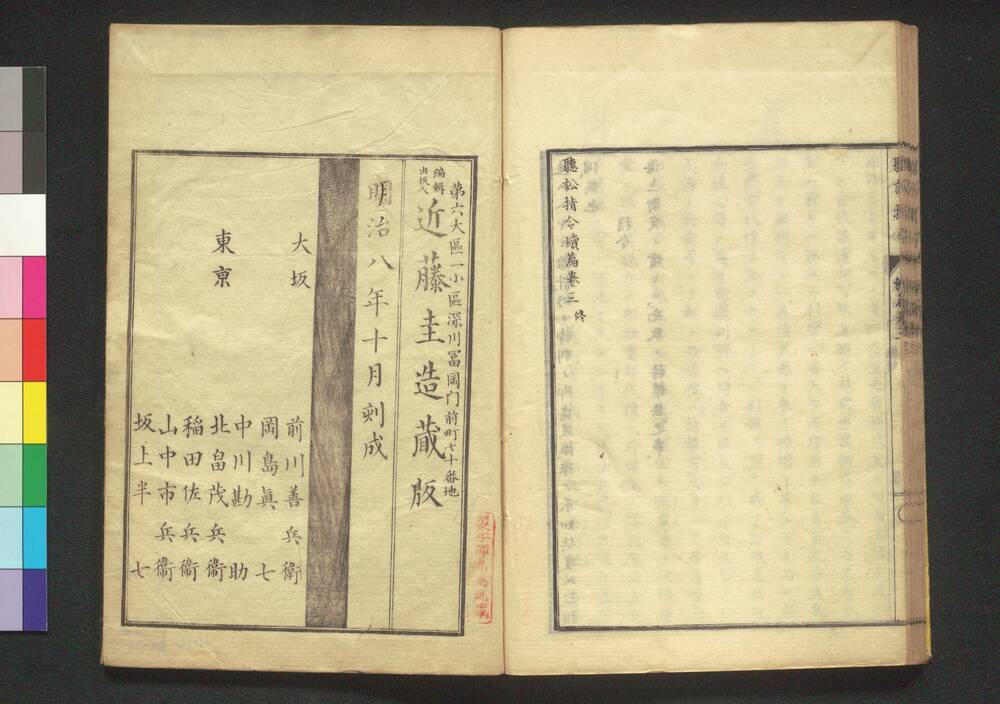 聽訟指令續篇巻三終
第六大區一小區深川冨岡門前町七十番地
編輯
出板人
近藤圭造蔵版
明治八年十月刻成
大坂
前川善兵衛
岡島眞七
東亰
中川勘助
北畠茂兵衞
稲田佐兵衞
山中市兵衞
坂上半七